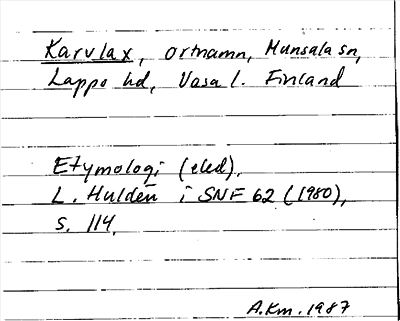 Karvlax, ortnamn, Munsala sn,
Lappo hd, Vasa l. Finland
Etymologi (eled).
L. Huldén i SNF 62 (1980),
s. 114.
A.Km. 1987